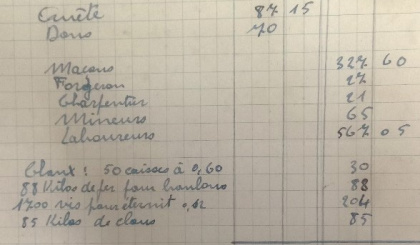 Curêté 87 15
Dons 70
Macons 327 60
Forgeron 27
Charpentier 21
Mineurs 65
Laboureurs 567 05
Clous : 50 caisses à 0,60 30
88 Kilos de fer pour boulons 88
1700 vis pour éternit 0,12 204
85 Kilos de clous 85